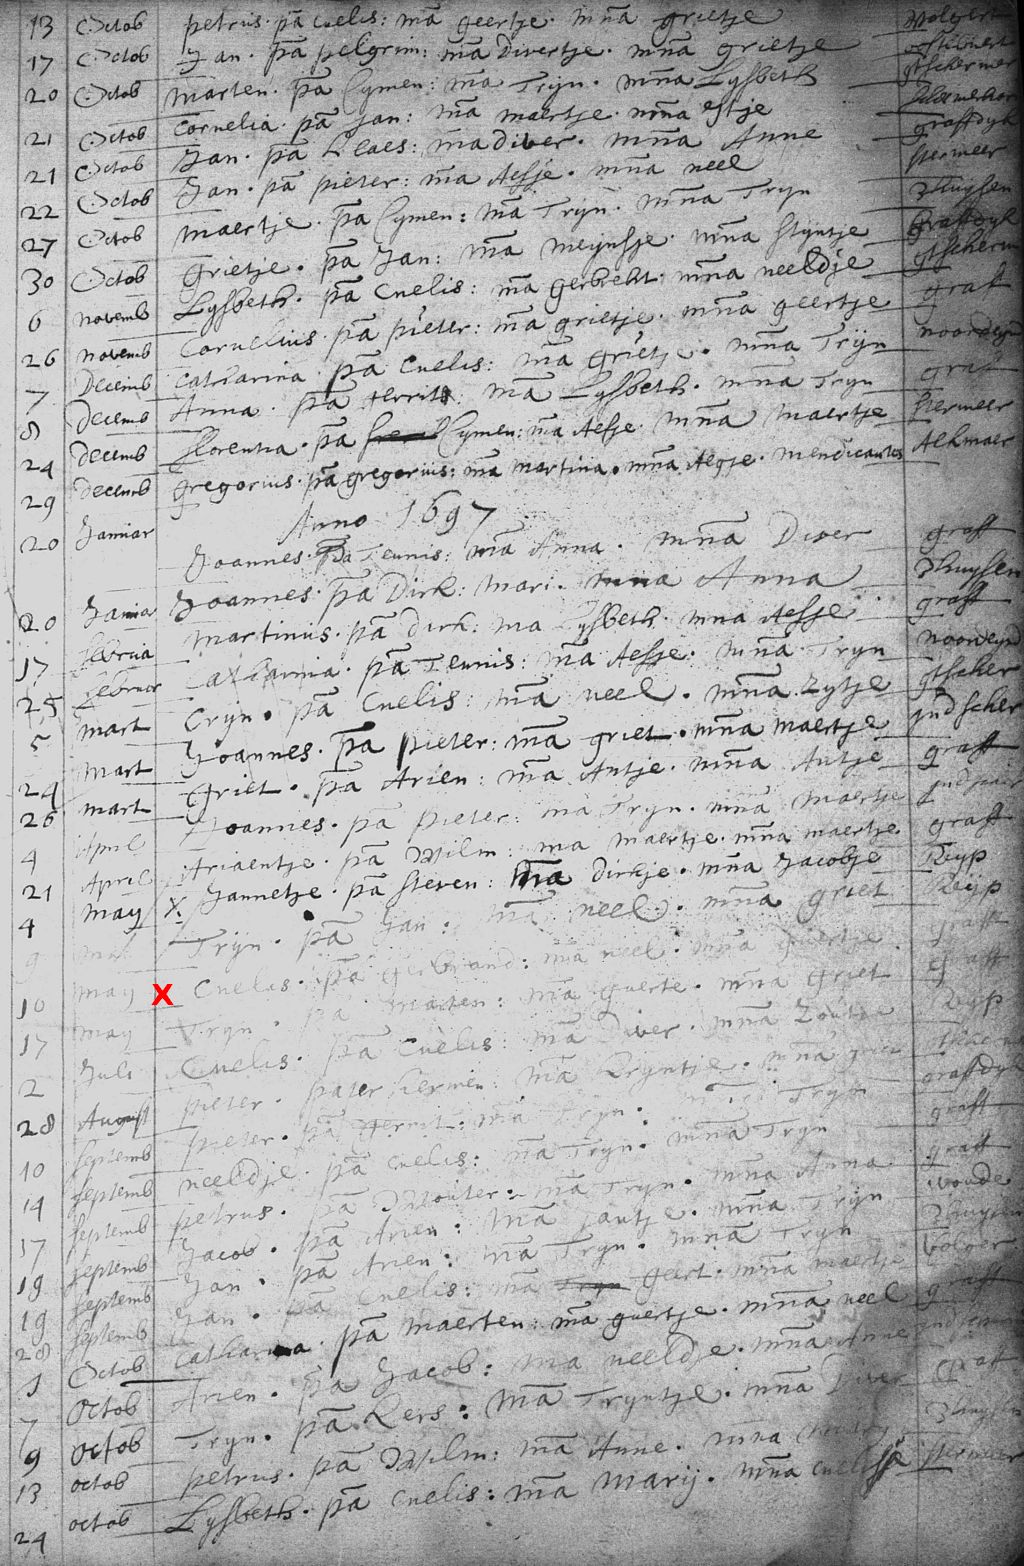 13 Octob petrus · pa Cuelis : ma geertje · mna grietje Volgert
17 Octob Jan · pa pelgrim : ma Divertje · mna grietje
20 Octob marten · pa Cymen : ma Tryn · mna Lysbeth gtschermer
21 Octob Cornelia · pa Jan : ma maertje · mna
21 Octob Jan · pa Claes : ma diver · mna Anne graftdyk
22 Octob Jan · pa pieter : ma Aefje · mna neel stermeer
27 Octob maertje · pa Cymen : ma Tryn · mna Tryn Zhuysen
30 Octob grietje · pa Jan : ma meynsje · mna styntje graftdyk
6 novemb Lysbeth · pa Cuelis : ma gerbreht · mna neeldje gtscherm
26 novemb Cornelius · pa pieter : ma grietje · mna geertje graft
7 Decemb Catharina · pa Cuelis : ma grietje · mna Tryn noordeynd
8 decemb Anna · pa gerrits ma Lysbeth · mna Tryn graft
24 decemb florentia · pa Cymen : ma Aefje · mna maertje stermeer
29 decemb gregorius · pa gregorius : ma martina · mna Aegje · mendicantes Alkmaer
Anno 1697
20 Januar Joannes · pa Teunis : ma Anna · mna Diver graft
20 Janua Joannes · pa Dirk : mari · mna Anna Zhuysen
17 februa martinus · pa dirk : ma Lysbeth · mna Aefje graft
25 februar Catharina · pa Teunis : ma Aefje · mna Tryn noordeynd
5 mart Tryn · pa Cuelis : ma neel · mna Zytje gtscher
24 mart Joannes · pa pieter : ma griet · mna maertje
26 mart griet · pa Arien : ma Antje · mna Antje graft
4 April Joannes · pa pieter : ma Tryn · mna maertje
21 April Ariaentje · pa Wilm : ma maertje · mna maertje graft
4 may X · Jannetje · pa steven : ma dirkje · mna Jacobje Ryp
9 mai Tryn · pa Jan : ma neel · mna griet Ryp
10 may X Cuelis · pa gerbrand : ma neel · mna geertje graft
17 may Tryn · pa marten : ma geerte · mna griet graft
2 Juli Cuelis · pa Cuelis : ma Diver · mna Ryp
28 August pieter · pater hermen : ma Kryntje · mna
10 septemb pieter · pa gerrit : ma Tryn · Tryn graftdyk
14 septemb neeldje · pa Cuelis : ma Tryn · mna Tryn graft
17 septemb petrus · pa Wouter · ma Tryn · mna Anna graft
19 septemb Jacob · pa Arien : ma jantje · mna Tryn woude
19 septemb Jan · pa Arien : ma Tryn · mna Tryn Zhuysen
28 septemb Jan · pa Cuelis : ma geert · mna maertje Volger
Octob Catharina · pa maerten : ma geertje · mna neel graft
7 Octob Arien · pa Jacob : ma neeldje · mna Anne
9 Octob Tryn · pa Kers : ma Tryntje · mna Diver graft
13 octob petrus · pa Wilm : ma Anne · mna Zhuysen
24 octob Lysbeth · pa Cuelis : ma marij · mna stermeer